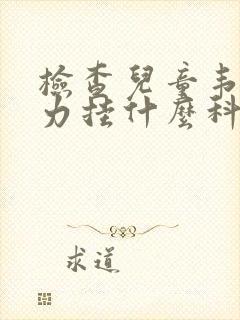 檢查兒童韦
力挂什麼科
求道